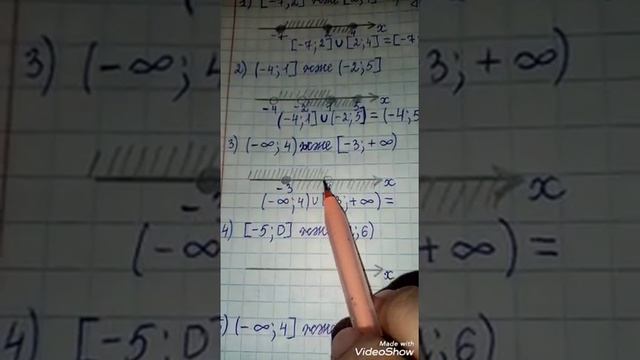 [-7; 2]
-7 2 4 x
[-7; 2] ∪ [2; 4] = [-7;
2) (-4; 1] және (-2; 5]
-4 -2 1 5 x
(-4; 1] ∪ (-2; 5] = (-4; 5
3) (-∞; 4) және [-3; +∞)
-3 x
(-∞; 4) ∪ 3; +∞) =
4) [-5; 0] және ; 6)
x
(-∞; 4] және
Made with
VideoShow